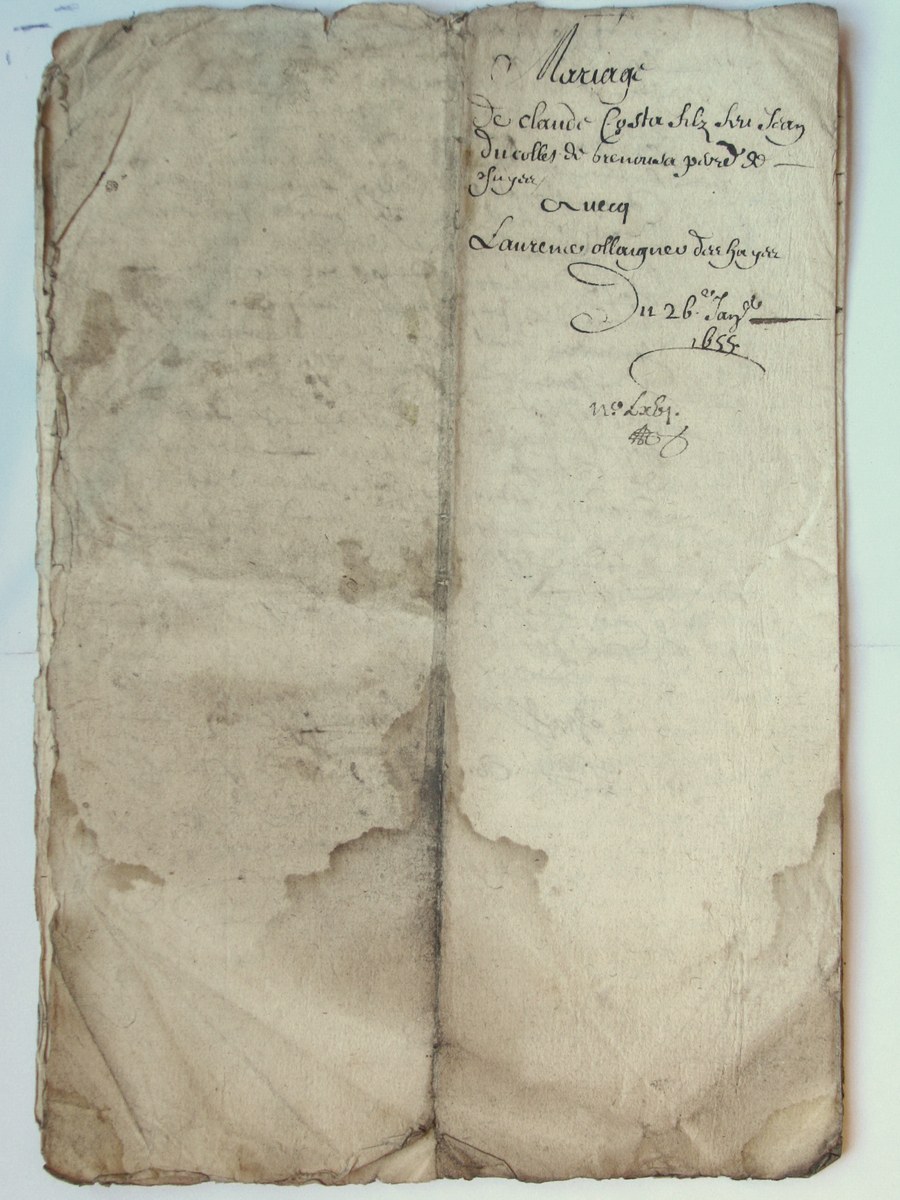 Mariage
De claude Costa filz feu Jean
du colles de brenousa
Avecq
Laurence ollaignev
Du 26e Janv
1655
no Lxvj.